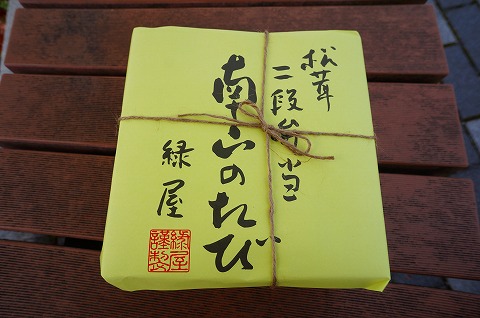 松茸
二段弁当
南山のたび
緑屋
緑屋
謹製